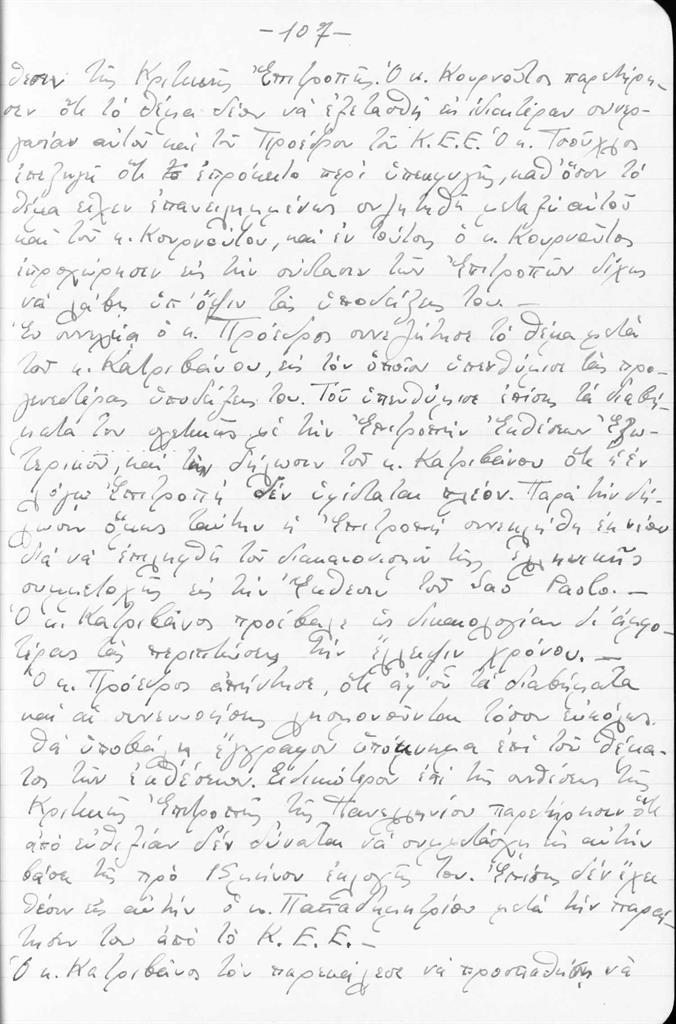 -107-
θεσιν τῆς Κριτικῆς Ἐπιτροπῆς. Ὁ κ. Κουρνοῦτος παρετήρη-
σεν ὅτι τὸ θέμα δέον νὰ ἐξετασθῆ εἰς ἰδιαιτέραν συνερ-
γασίαν αὐτοῦ καὶ τοῦ Προέδρου τοῦ Κ.Ε.Ε. Ὁ κ. Τσοῦχλος
ἐπεξηγεῖ ὅτι ἐπρόκειτο περὶ ὑπεκφυγῆς, καθ' ὅσον τὸ
θέμα εἶχεν ἐπανειλημμένως συζητηθῆ μεταξὺ αὐτοῦ
καὶ τοῦ κ. Κουρνούτου, καὶ ἐν τούτοις ὁ κ. Κουρνοῦτος
ἐπροχώρησεν εἰς τὴν σύστασιν τῶν Ἐπιτροπῶν δίχως
νὰ λάβη ὑπ' ὄψιν τὰς ὑποδείξεις του. -
Ἐν συνεχείᾳ ὁ κ. Πρόεδρος συνεζήτησε τὸ θέμα μετὰ
τοῦ κ. Κατριβάνου, εἰς τὸν ὁποῖον ὑπενθύμισε τὰς προ-
γενεστέρας ὑποδείξεις του. Τοῦ ὑπενθύμισε ἐπίσης τὰ διαβή-
ματα του σχετικῶς μὲ τὴν Ἐπιτροπὴν Ἐκθέσεων Ἐξω-
τερικοῦ, καὶ τὴν δήλωσιν τοῦ κ. Κατριβάνου ὅτι ἡ ἐν
λόγῳ Ἐπιτροπὴ δὲν ὑφίσταται πλέον. Παρὰ τὴν δή-
λωσιν ὅμως ταύτην ἡ Ἐπιτροπὴ συνεκλήθη ἐκ νέου
διὰ νὰ ἐπιληφθῆ τοῦ διακανονισμοῦ τῆς ἑλληνικῆς
συμμετοχῆς εἰς τὴν Ἔκθεσιν τοῦ Sao Paolo. -
Ὁ κ. Κατριβάνος προέβαλε ὡς δικαιολογίαν δι' ἀμφο-
τέρας τὰς περιπτώσεις τὴν ἔλλειψιν χρόνου. -
Ὁ κ. Πρόεδρος ἀπήντησε, ὅτι ἀφ' οὗ τὰ διαβήματα
καὶ αἱ συνεννοήσεις λησμονοῦνται τόσον εὐκόλως,
θὰ ὑποβάλη ἔγγραφον ὑπόμνημα ἐπὶ τοῦ θέμα-
τος τῶν ἐκθέσεων. Εἰδικώτερον ἐπὶ τῆς συνθέσεως τῆς
Κριτικῆς Ἐπιτροπῆς τῆς Πανελληνίου παρετήρησεν ὅτι
ἀπὸ εὐθιξίαν δὲν δύναται νὰ συμμετάσχη εἰς αὐτὴν
βάσει τῆς πρὸ 15μήνου ἐκλογῆς του. Ἐπίσης δὲν ἔχει
θέσιν εἰς αὐτὴν ὁ κ. Παπαδημητρίου μετὰ τὴν παραί-
τησιν του ἀπὸ τὸ Κ.Ε.Ε. -
Ὁ κ. Κατριβάνος τὸν παρεκάλεσε νὰ προσπαθήση νὰ